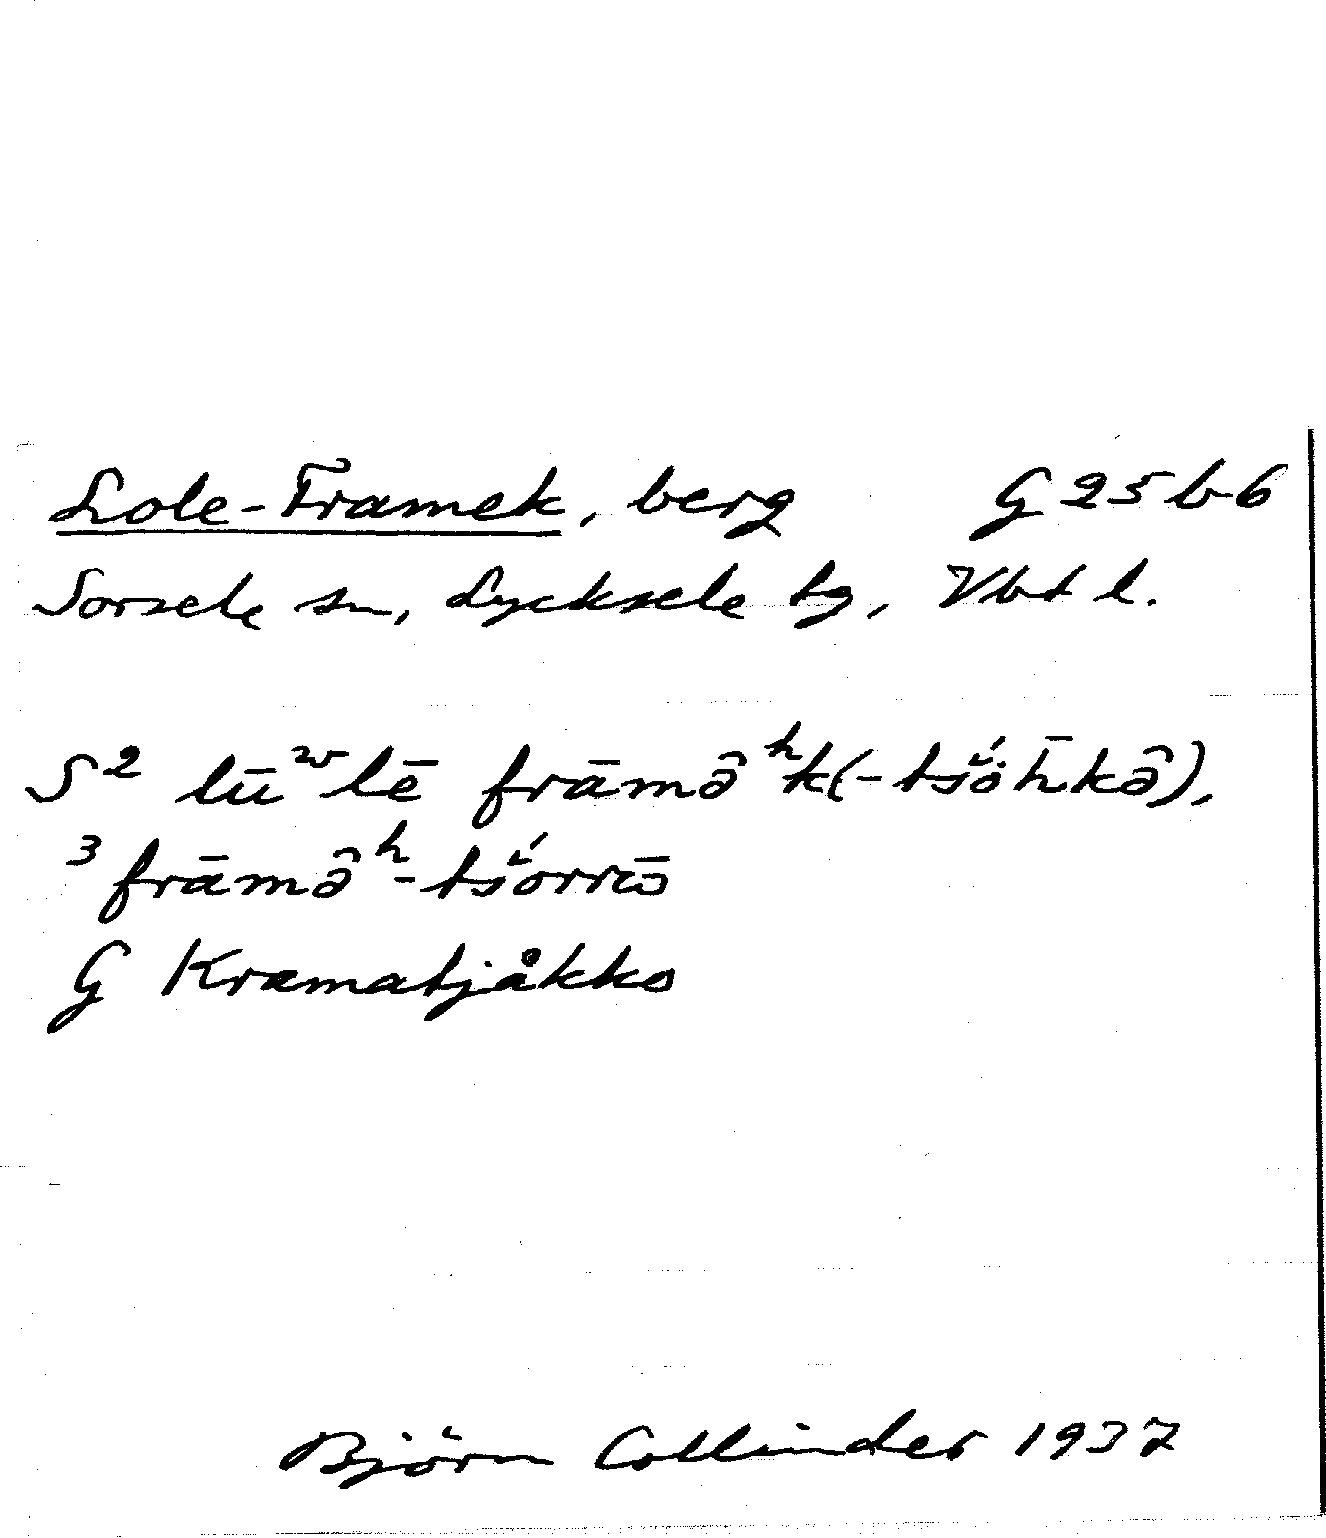 Lole-Framek, berg G 25 b-6
Sorsele sn, Lycksele tg, Vbt l.
S² lūʷlē frāmə̂ʰk(-tšɔ́h̄kə̂),
³ frāmə̂ʰ-tšórrɷ̄
G Kramatjåkko
Björn Collinder 1937